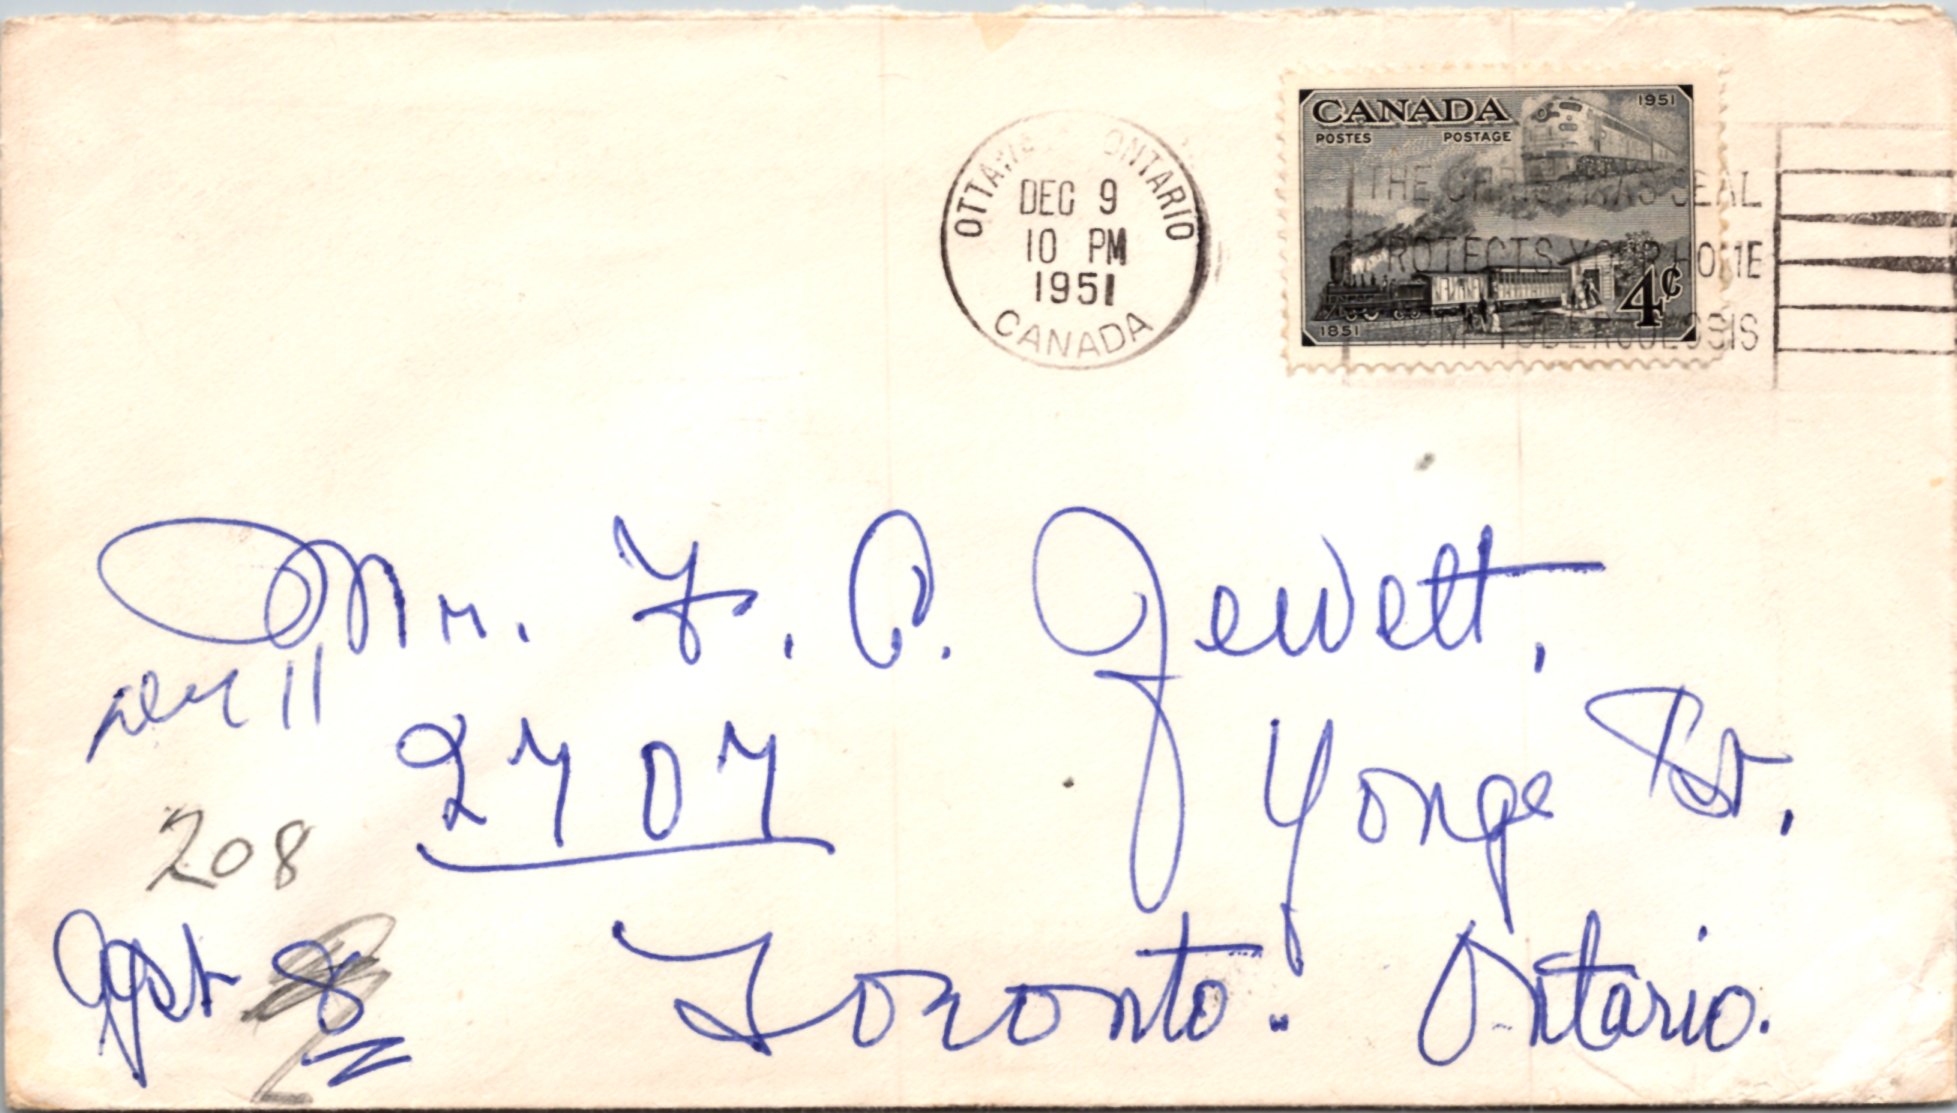 CANADA 1951
POSTES POSTAGE
1851 4¢
OTTAWA ONTARIO
DEC 9
10 PM
1951
CANADA
THE CHRISTMAS SEAL
PROTECTS YOUR HOME
FROM TUBERCULOSIS
Mr. F. C. Jewett,
11
2707 Yonge St.,
208
Apt 8
Toronto. Ontario.